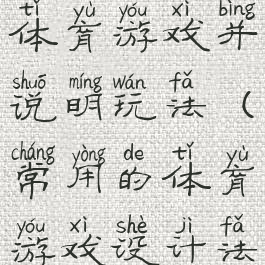 tǐ yù yóu xì bìng
体育游戏并
shuō míng wán fǎ
说明玩法（
cháng yòng de tǐ yù
常用的体育
yóu xì shè jì fǎ
游戏设计法